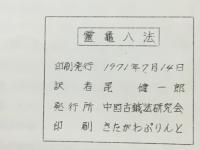 靈亀八法
印刷発行 1971年7月14日
訳者 昆 健一郎
発行所 中国古鍼法研究会
印刷 きたがわぷりんと